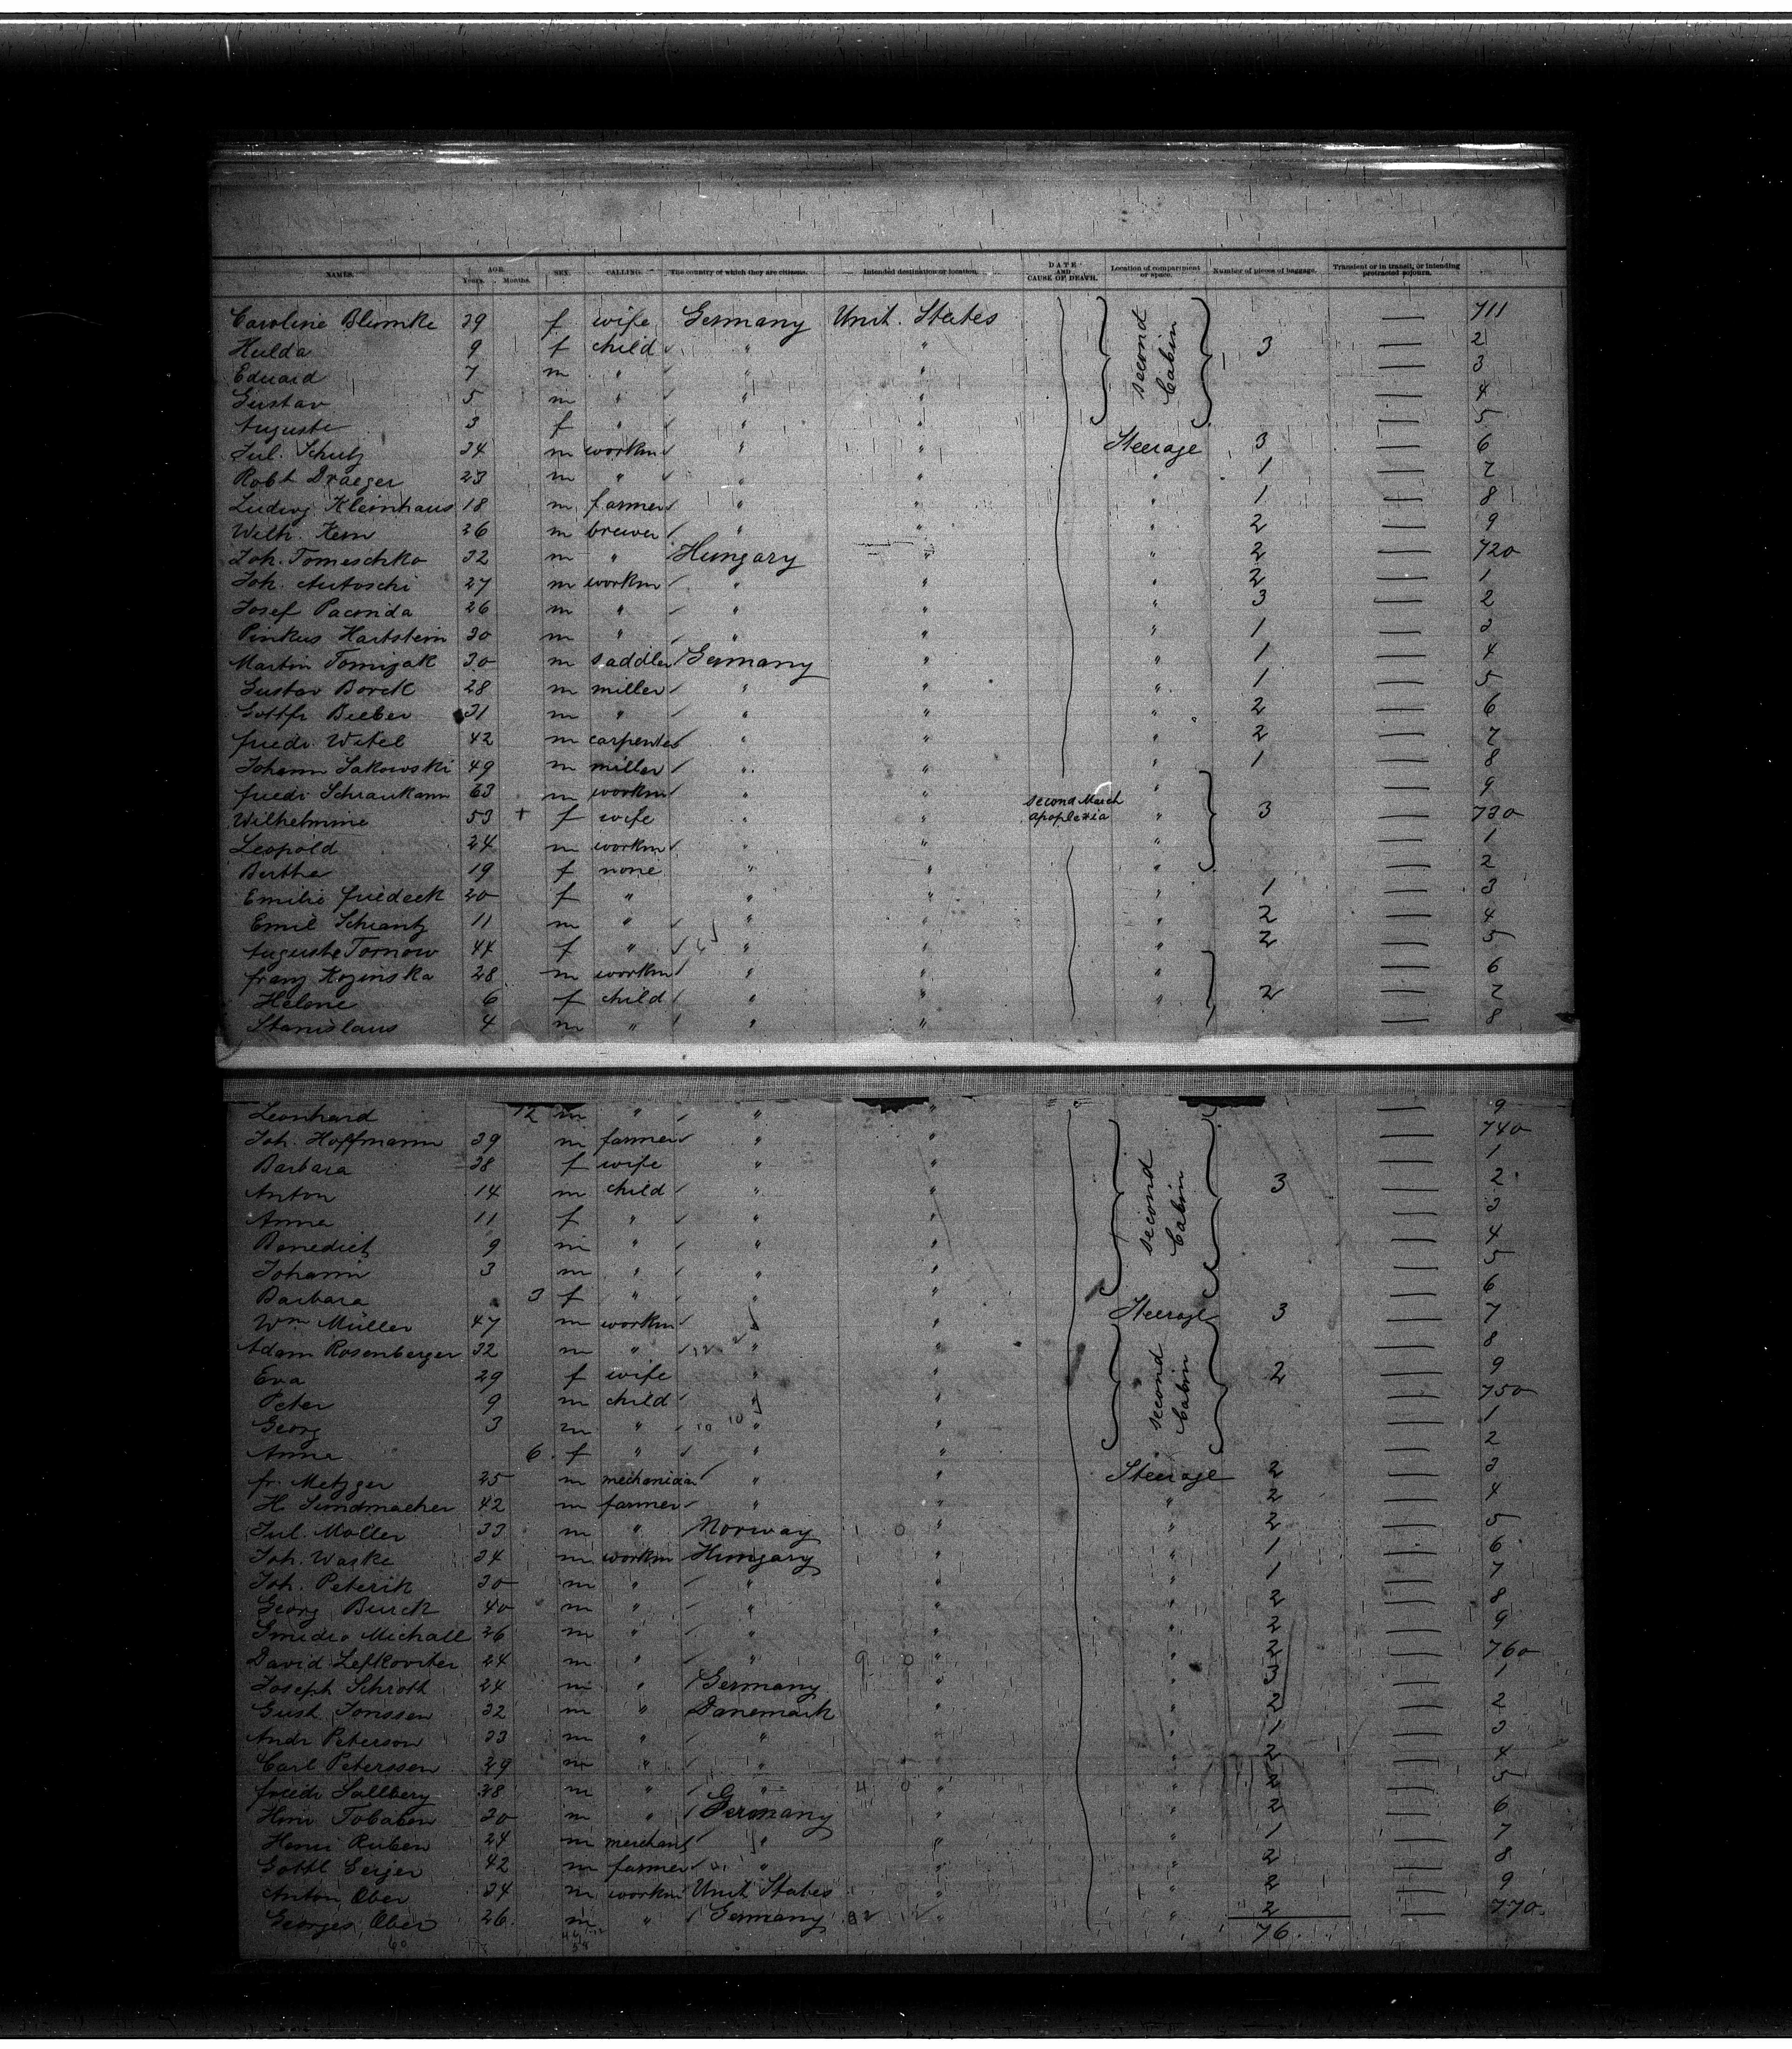 NAMES. AGE. Years. Months. SEX. CALLING. The country of which they are citizens. Intended destination or location. DATE AND CAUSE OF DEATH. Location of compartment or space. Number of pieces of baggage. Transient or in transit, or intending protracted sojourn.
Caroline Blumke 39 f wife Germany Unit. States second Cabin — 711
Hulda 9 f child " " 3 — 2
Eduard 7 m " " " — 3
Gustav 5 m " " " — 4
Auguste 3 f " " " — 5
Jul. Schulz 24 m workm " " Steerage 3 — 6
Robt Draeger 23 m " " " " 1 — 7
Ludwig Kleinhaus 18 m farmer " " " 1 — 8
Wilh. Kern 26 m brewer " " " 2 — 9
Joh. Tomeschko 32 m " Hungary " " 2 — 720
Joh. Antoschi 27 m workm " " " 2 — 1
Josef Paconda 26 m " " " " 3 — 2
Pinkus Hartstein 30 m " " " " 1 — 3
Martin Tomizak 30 m saddler Germany " " 1 — 4
Gustav Borck 28 m miller " " " 1 — 5
Gottfr Bieber 31 m " " " " 2 — 6
Friedr. Wetel 42 m carpenter " " " 2 — 7
Johann Sakowski 49 m miller " " " 1 — 8
Friedr Schraukamm 63 m workm " " " — 9
Wilhelmine 53 + f wife " " second March apoplexia " 3 — 730
Leopold 24 m workm " " " — 1
Bertha 19 f none " " — 2
Emilie Friedeck 20 f " " " " 1 — 3
Emil Schrantz 11 m " " " " 2 — 4
Auguste Tornow 44 f " " " " 2 — 5
Franz Kozinska 28 m workm " " " — 6
Helene 6 f child " " " 2 — 7
Stanislaus 4 m " " " — 8
Leonhard 12 m " " " — 9
Joh. Hoffmann 39 m farmer " " second Cabin — 740
Barbara 38 f wife " " — 1
Anton 14 m child " " 3 — 2
Anna 11 f " " " — 3
Benedict 9 m " " " — 4
Johann 3 m " " " — 5
Barbara 3 f " " " — 6
Wm Müller 47 m workm " " Steerage 3 — 7
Adam Rosenberger 32 m " " " second Cabin — 8
Eva 29 f wife " " 2 — 9
Peter 9 m child " " — 750
Georg 3 m " " " — 1
Anna 6 f " " " — 2
Fr. Metzger 25 m mechanician " " Steerage 2 — 3
H. Sundmacher 42 m farmer " " " 2 — 4
Jul. Moller 33 m " Norway " " 2 — 5
Joh. Waske 24 m workm Hungary " " 1 — 6
Joh. Peterik 30 m " " " " 1 — 7
Georg Burck 40 m " " " " 2 — 8
Michall 26 m " " " " 2 — 9
David Lefkoviter 24 m " " " " 2 — 760
Joseph Schroth 24 m " Germany " " 3 — 1
Gust. Jonssen 32 m " Danemark " " 2 — 2
Andr Peterson 23 m " " " " 1 — 3
Carl Peterssen 29 m " " " " 2 — 4
Friedr Sallberg 38 m " " " " 2 — 5
Henr Tobaben 30 m " Germany " " 2 — 6
Henri Ruben 24 m merchant " " " 1 — 7
Gottl Geiger 42 m farmer " " " 2 — 8
Anton Ober 34 m workm Unit States " " 2 — 9
Georges Ober 26 m " Germany " " 2 — 770
76.